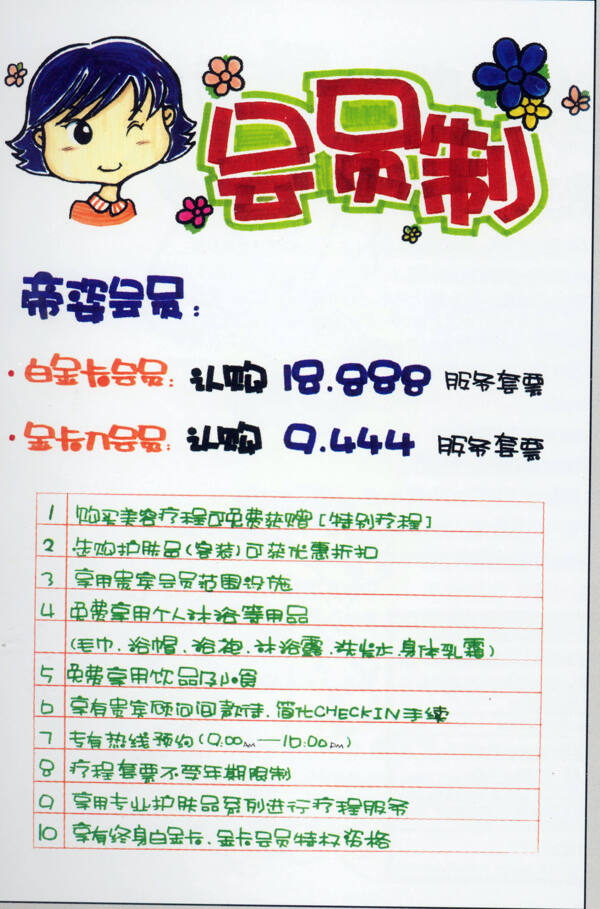 会员制
帝姿会员：
·白金卡会员：认购 18.888 服务套票
·金卡会员：认购 9.444 服务套票
1 购买美容疗程可免费获赠[特别疗程]
2 选购护肤品(客装)可获优惠折扣
3 享用贵宾会员范围设施
4 免费享用个人沐浴等用品
(毛巾.浴帽.浴袍.沐浴露.洗发水.身体乳霜)
5 免费享用饮品及小食
6 享有贵宾顾问间款待.简化CHECKIN手续
7 专有热线预约(9:00am—10:00pm)
8 疗程套票不受年期限制
9 享用专业护肤品系列进行疗程服务
10 享有终身白金卡.金卡会员特权资格